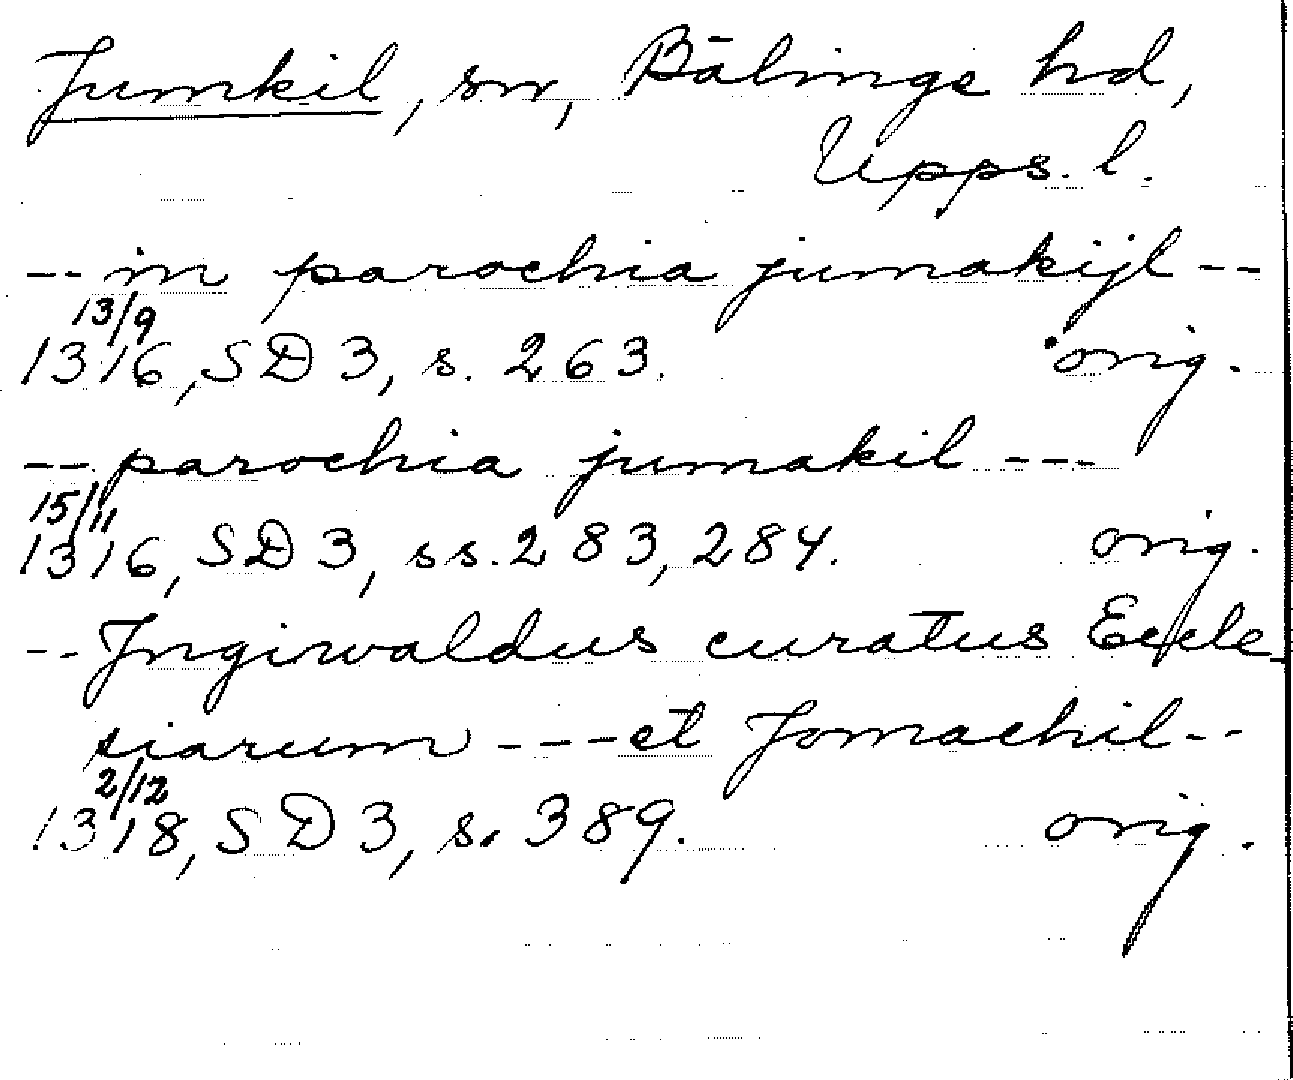 Jumkil, sn, Bälinge hd,
Upps. l.
-- in parochia jumakijl --
13/9
1316, SD 3, s. 263. orig.
-- parochia jumakil ---
15/11
1316, SD 3, ss. 283, 284. orig.
-- Jngirvaldus curatus Eccle-
siarum --- et Jomachil --
2/12
1318, SD 3, s. 389. orig.